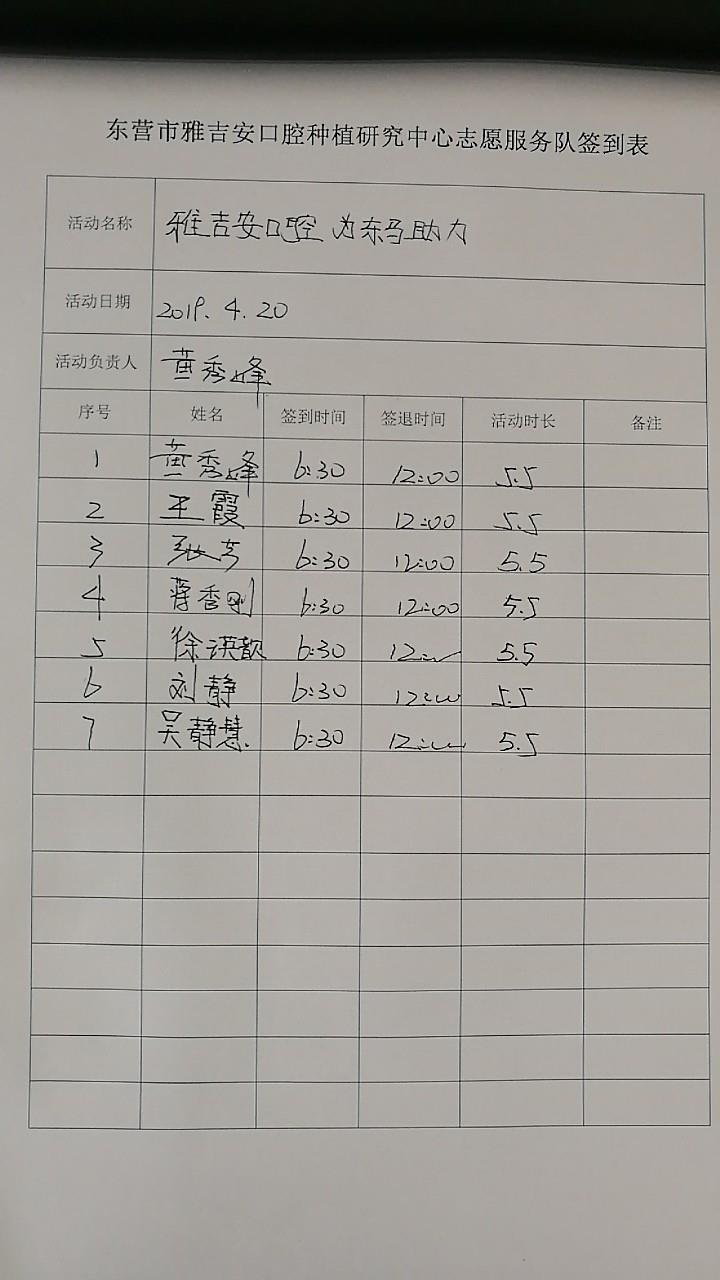 东营市雅吉安口腔种植研究中心志愿服务队签到表
活动名称 雅吉安口腔为东马助力
活动日期 2019.4.20
活动负责人 黄秀峰
序号 姓名 签到时间 签退时间 活动时长 备注
1 黄秀峰 6:30 12:00 5.5
2 王霞 6:30 12:00 5.5
3 张芳 6:30 12:00 5.5
4 蒋香刚 6:30 12:00 5.5
5 徐瑛歆 6:30 12:00 5.5
6 刘静 6:30 12:00 5.5
7 吴静慧 6:30 12:00 5.5